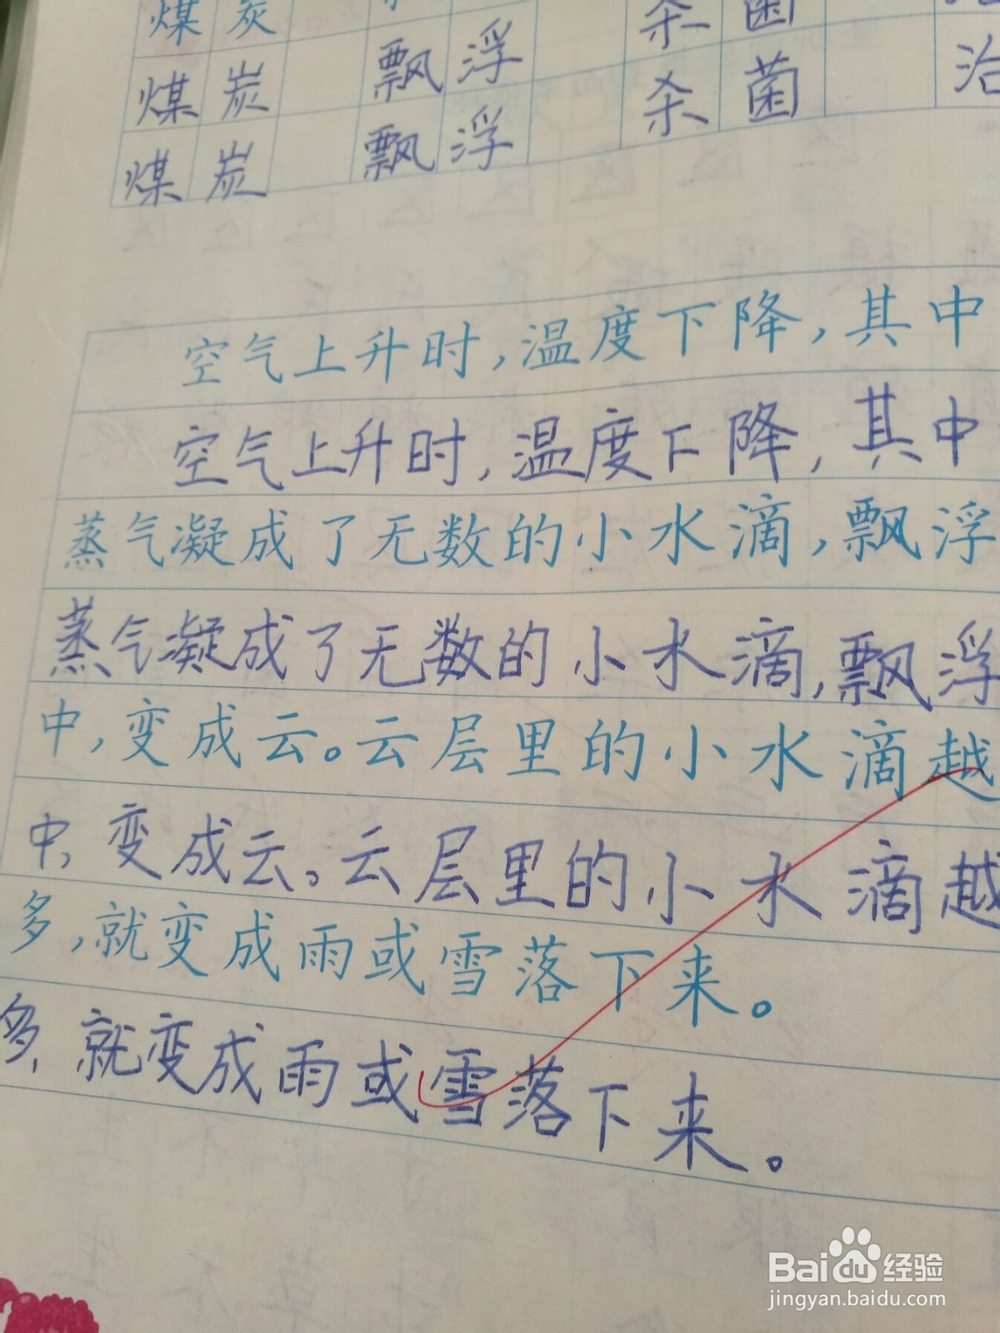 煤 炭
煤 炭 飘 浮 杀 菌
煤 炭 飘 浮 杀 菌 治
空气上升时,温度下降,其中
空气上升时,温度下降,其中
蒸气凝成了无数的小水滴,飘浮
蒸气凝成了无数的小水滴,飘浮
中,变成云。云层里的小水滴越
中,变成云。云层里的小水滴越
多,就变成雨或雪落下来。
多,就变成雨或雪落下来。
Baidu 经验
jingyan.baidu.com